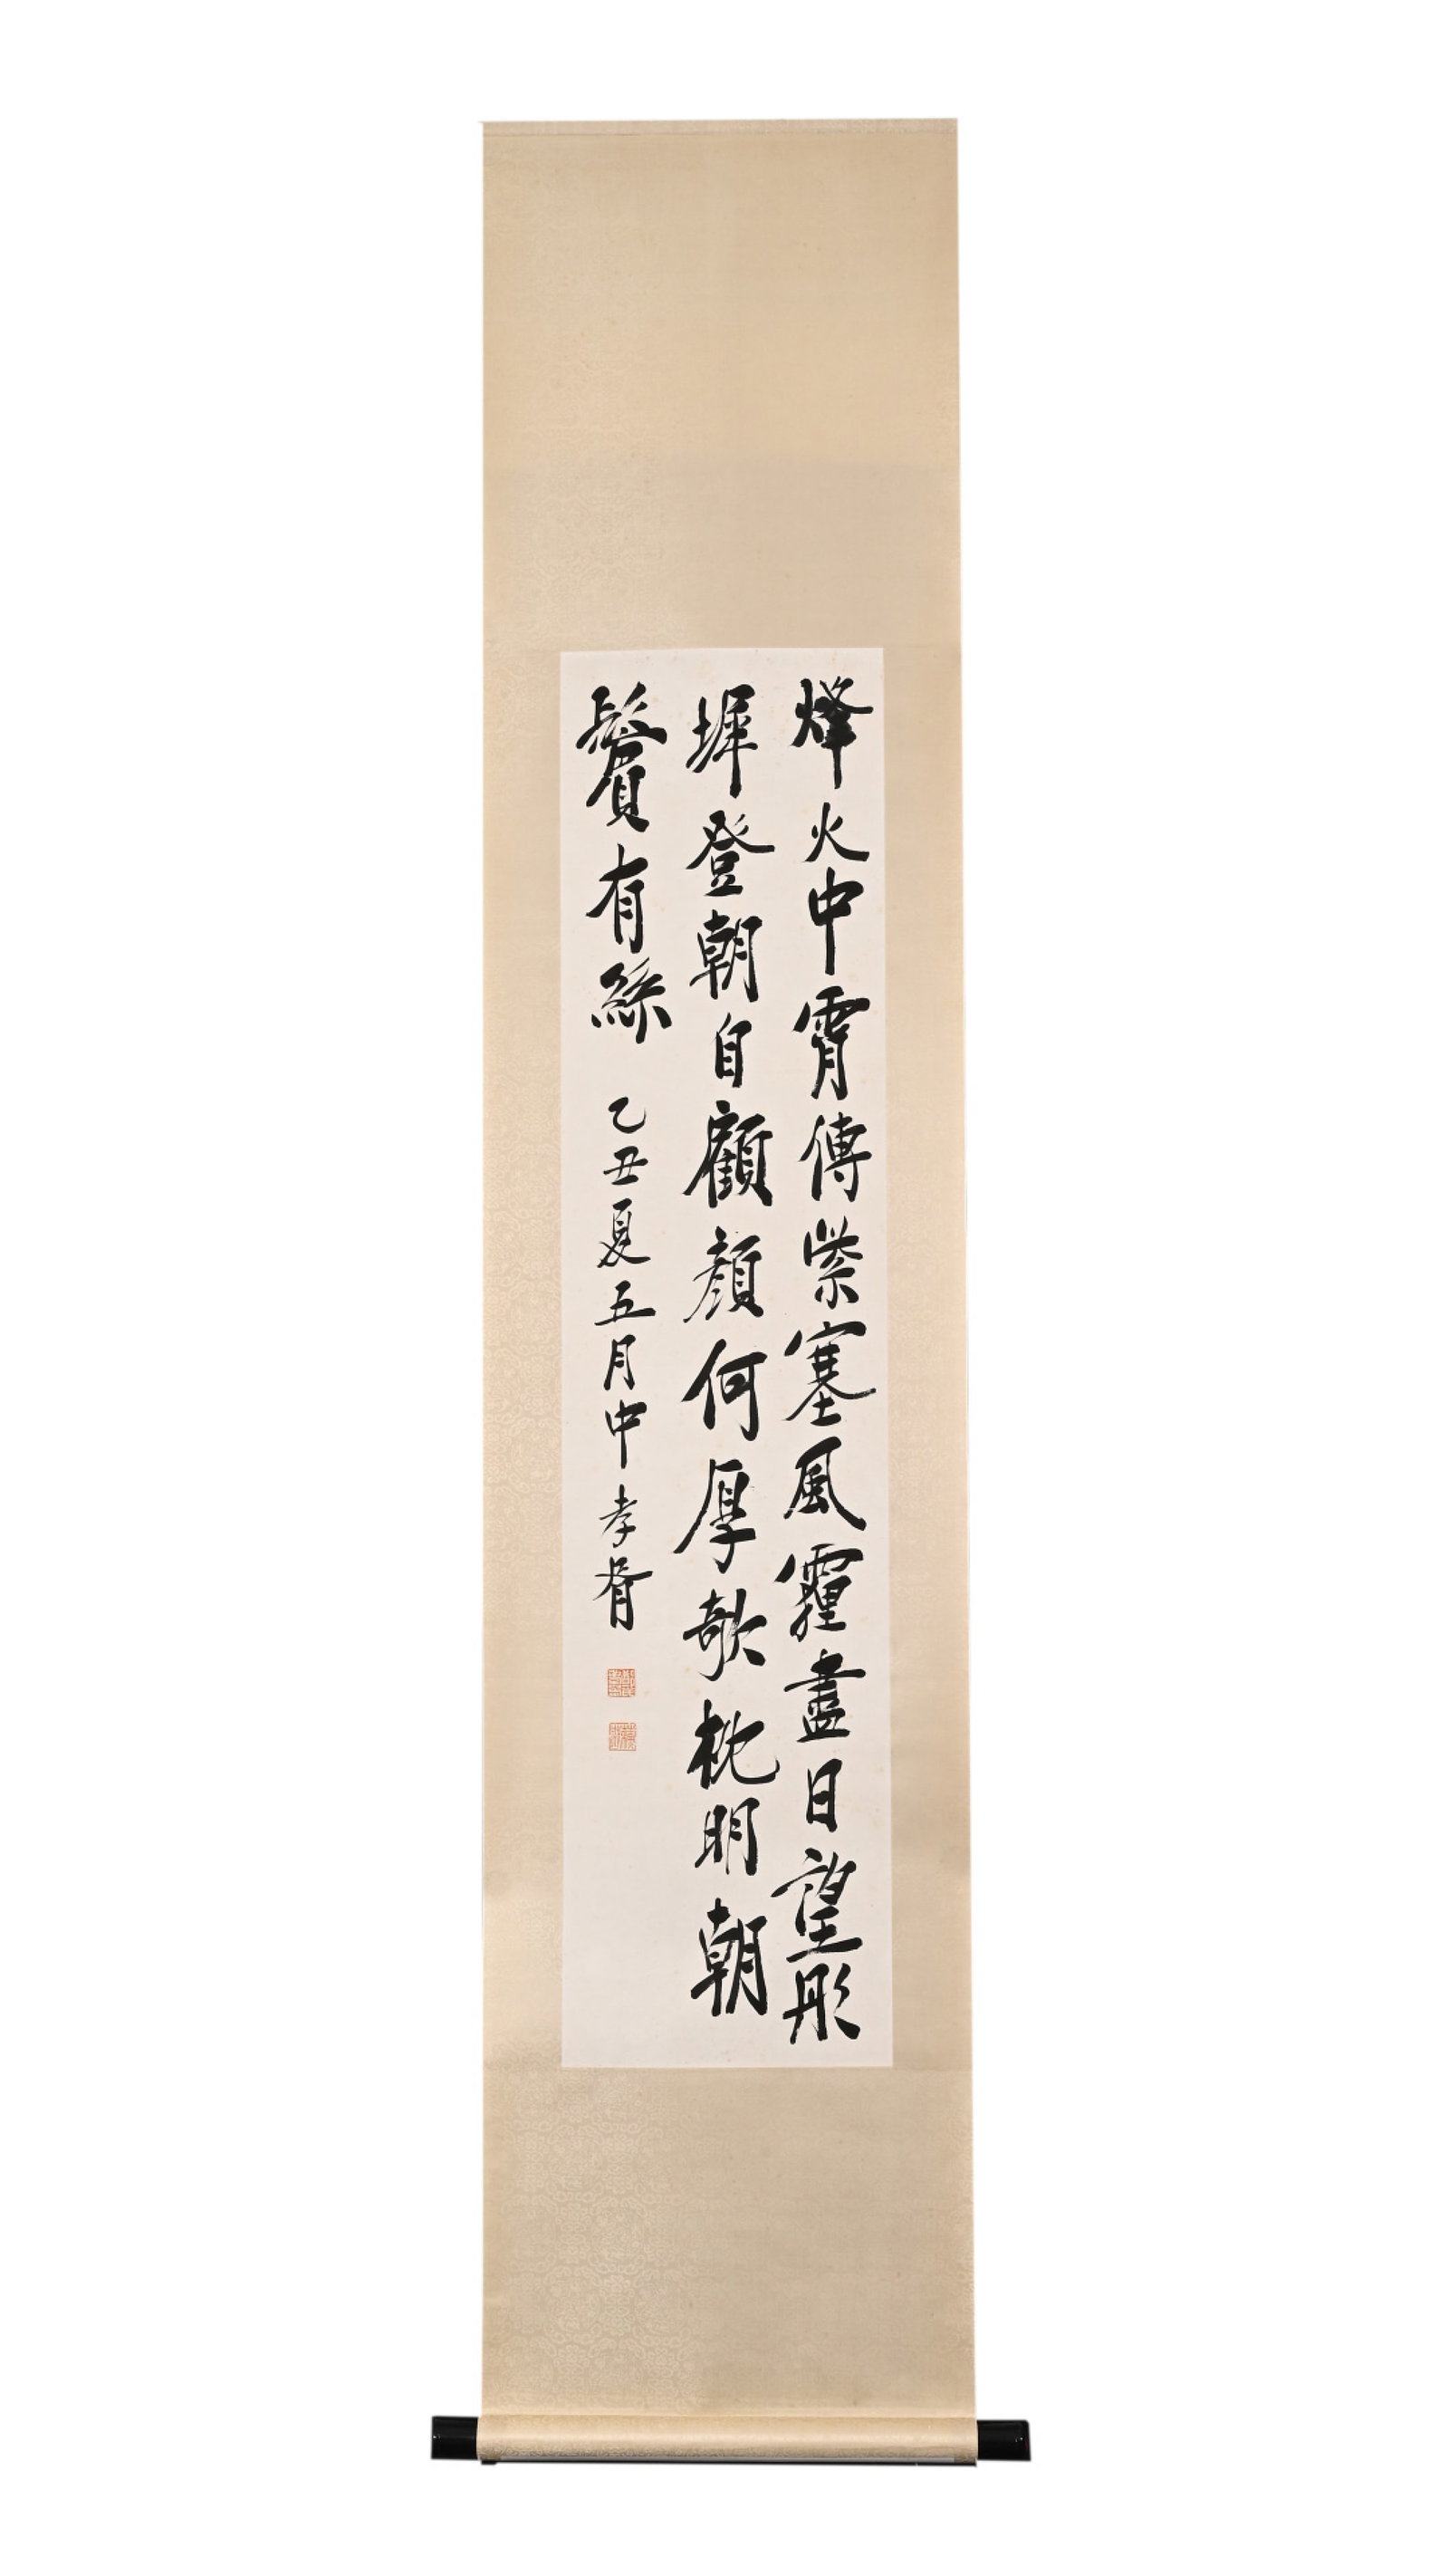 烽火中霄傳紫塞風霾盡日望彤
墀登朝自顧顏何厚欹枕明朝
鬢有絲 乙丑夏五月中 孝胥